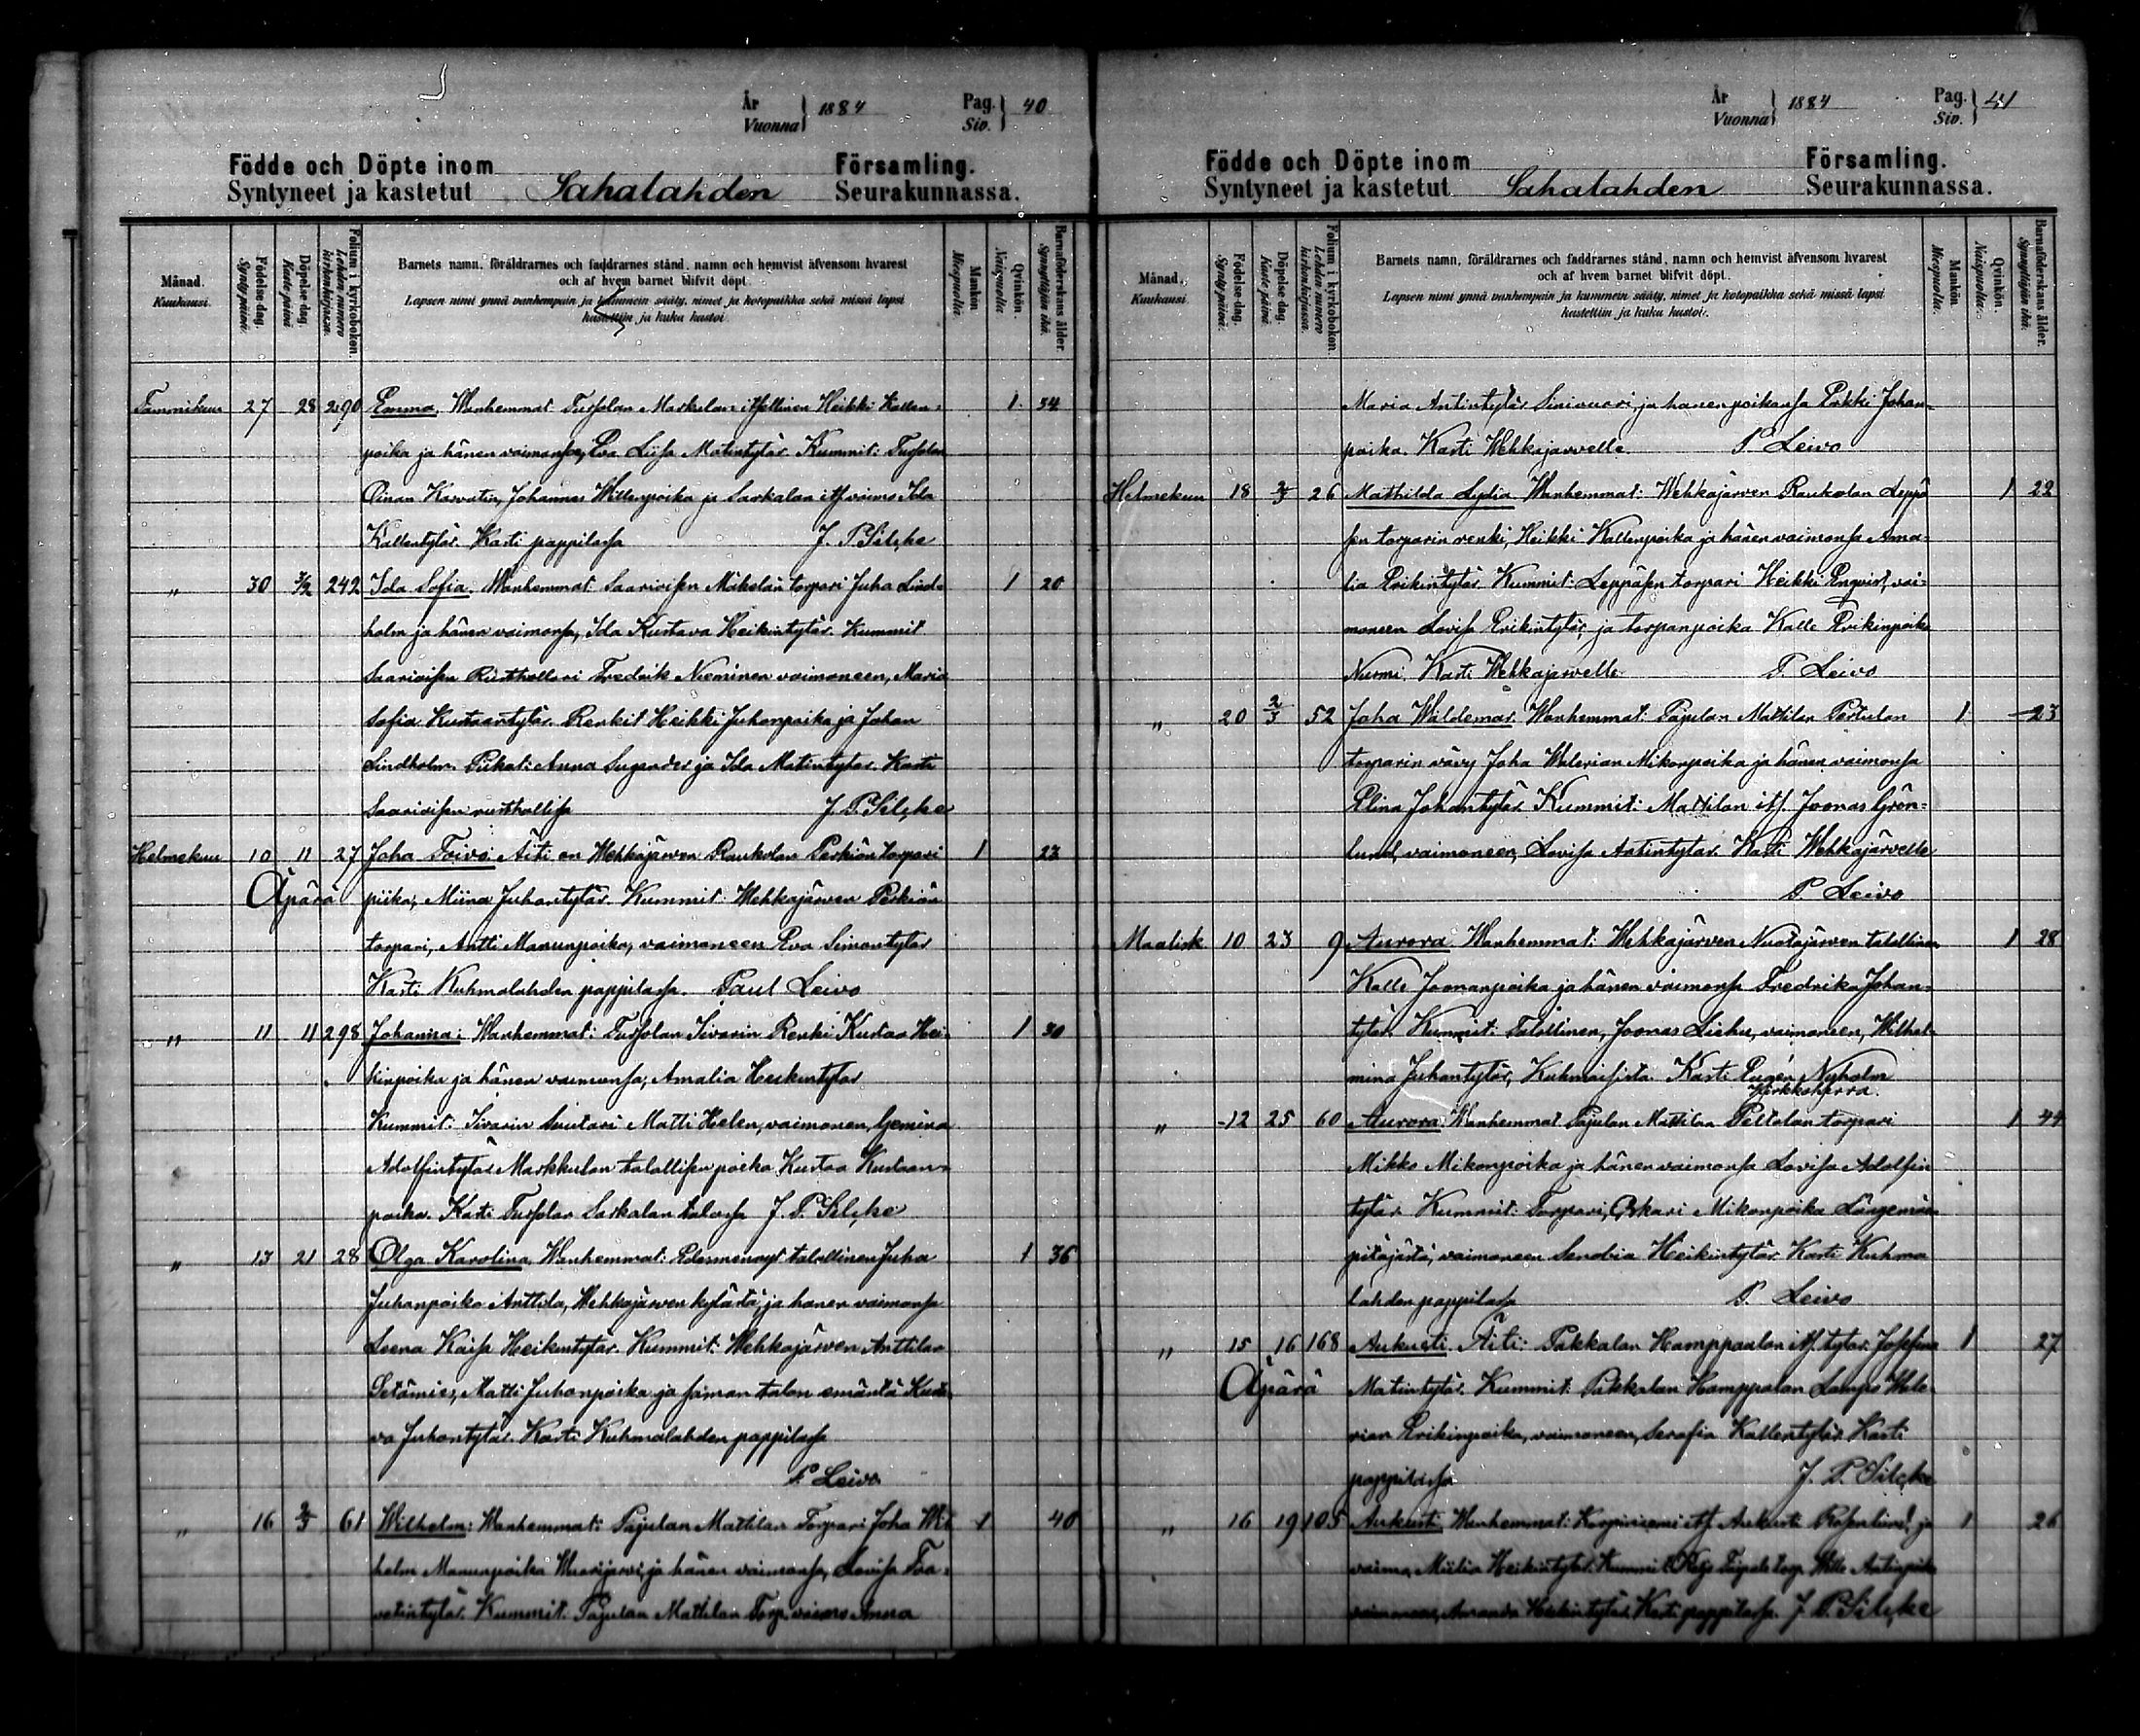 År
Vuonna } 1884 Pag.
Siv. } 40
Födde och Döpte inom Församling.
Syntyneet ja kastetut Sahalahden Seurakunnassa.
Månad.
Kuukausi.
Födelse dag.
Synty päivä.
Döpelse dag.
Kaste päivä
Folium i kyrkoboken.
Lehden numero kirkonkirjassa.
Barnets namn, föräldrarnes och faddrarnes stånd, namn och hemvist äfvensom hvarest
och af hvem barnet blifvit döpt.
Lapsen nimi ynnä vanhempain ja kummein sääty, nimet ja kotopaikka sekä missä lapsi
kastettiin ja kuka kastoi.
Mankön.
Miespuolta.
Qvinkön.
Naispuolta.
Barnaföderskans ålder.
Synnyttäjän ikä.
Tammikuu 27 28 290 Emma. Wanhemmat Tursolan Markulan itsellinen Heikki Kallen- 1 34
poika ja hänen vaimonsa, Eva Liisa Matintytär. Kummit: Tursolan
Johannes Willenpoika ja Sarkalan its vaimo Ida
Kallentytär. Kasti pappilassa J. P. Silcke
" 30 3/2 242 Ida Sofia. Wanhemmat: Saarioisen Mäkelän torpari Juha Lind- 1 20
holm ja hänen vaimonsa, Ida Kustava Heikintytär. Kummit
Saarioisen Rusthollari Fredrik Nieminen vaimoneen, Maria
Sofia Kustaantytär. Renkit Heikki Juhonpoika ja Johan
Lindholm. Piikat: Anna Sugander ja Ida Matintytar. Kasti
Saarioisen rusthollissa J. P. Silcke
Helmekuu 10 11 27 Joha Toivo: Äiti on Wehkajärven Raukolan Perkiön torpari 1 23
Äpärä piika, Miina Juhontytär. Kummit: Wehkajärven Perkiön
torpari, Antti Manunpoika, vaimoneen Eva Simontytar
Kasti Kuhmalahden pappilassa. Paul Leivo
" 11 11 298 Johanna: Wanhemmat: Tursolan Iivarin Renki Kustaa Hei- 1 30
kinpoika ja hänen vaimonsa, Amalia Heikintytar
Kummit: Iivarin Suutari Matti Helen, vaimonen, Gemina
Adolfintytär Markkulan talollisen poika Kustaa Kustaan-
poika. Kasti Tursolan Sarkalan talossa J. P. Silcke
" 13 21 28 Olga Karolina. Wanhemmat: Edesmenayt talollinen Juha 1 36
Juhanpoika Anttila, Wehkajärven kylästä, ja hanen vaimonsa
Leena Kaisa Heikintytär. Kummit: Wehkajärven Anttilan
Setämies, Matti Juhonpoika ja saman talon emäntä Kusta
va Juhontytär. Kasti Kuhmalahden pappilassa
P. Leivo
" 16 2/3 61 Wilhelm: Wanhemmat: Pajulan Mattilan Torpari Joha Wil 1 40
helm Manunpoika Wuorijärvi, ja hänen vaimonsa, Lovisa Taa-
vetintytär. Kummit: Pajulan Mattilan Torp. vaimo Anna
År
Vuonna } 1884 Pag.
Siv. } 41
Födde och Döpte inom Församling.
Syntyneet ja kastetut Sahalahden Seurakunnassa.
Månad.
Kuukausi.
Födelse dag.
Synty päivä.
Döpelse dag.
Kaste päivä.
Folium i kyrkoboken.
Lehden numero kirkonkirjassa.
Barnets namn, föräldrarnes och faddrarnes stånd, namn och hemvist äfvensom hvarest
och af hvem barnet blifvit döpt.
Lapsen nimi ynnä vanhempain ja kummein sääty, nimet ja kotopaikka sekä missä lapsi
kastettiin ja kuka kastoi.
Mankön.
Miespuolta.
Qvinkön.
Naispuolta.
Barnaföderskans ålder.
Synnyttäjän ikä.
Maria Antintytär Sinivuori, ja hanen poikansa Erkki Johan-
poika. Kasti Wehkajarvella. P. Leivo
Helmekuu 18 2/3 26 Mathilda Lydia Wanhemmat: Wehkajärven Raukolan Leppä 1 22
sen torparin renki, Heikki Kallenpoika ja hänen vaimonsa Ama-
lia Erikintytär. Kummit: Leppäsen torpari Heikki Enqvist, vai-
moneen Lovisa Erikintytär, ja torpanpoika Kalle Erikinpoika
Nurmi. Kasti Wehkajarvelle P. Leivo
" 20 2/3 52 Joha Waldemar. Wanhemmat: Pajulan Mattilan Pertulan 1 23
torparin vävy Joha Walerian Mikonpoika ja hänen vaimonsa
Elina Johantytär. Kummit: Mattilan its. Joonas Grön-
lund, vaimoneen, Lovisa Antintytar. Kasti Wehkajärvelle
P. Leivo
Maalisk 10 23 9 Aurora Wanhemmat: Wehkajärven Nuotajärven talollinen 1 28
Kalle Joonanpoika ja hänen vaimonsa Fredrika Johan-
tytär. Kummit: Talollinen, Joonas Liehu, vaimoneen, Wilhel-
mina Juhantytär, Kuhmaisista. Kasti Eugén Nyholm
Kirkkoherra.
" 12 25 60 Aurora: Wanhemmat Pajulan Mattilan Peltolan torpari 1 44
Mikko Mikonpoika ja hänen vaimonsa Lovisa Adolfin
tytär. Kummit: Torpari, Oskari Mikonpoika Längemäen
pitäjästä, vaimoneen Senobia Heikintytär. Kasti Kuhma
lahden pappilassa P. Leivo
" 15 16 168 Aukusti Äiti: Pakkalan Hamppaalan its. tytar Josefina 1 27
Äpärä Matintytär. Kummit: Pakkalan Hamppalan Lampo Wale-
rian Erikinpoika, vaimoneen, Serafia Kallentytär. Kasti
pappilassa J. P. Silcke
" 16 19 105 Aukusti, Wanhemmat: Korpiniemi its. Aukusti Rosenlund, ja 1 26
vaimo, Miilia Heikintytar. Kummit: Taipale torp. Wille Antinpoika
vaimoneen, Amanda Heikintytär. Kasti pappilassa. J. P. Silcke